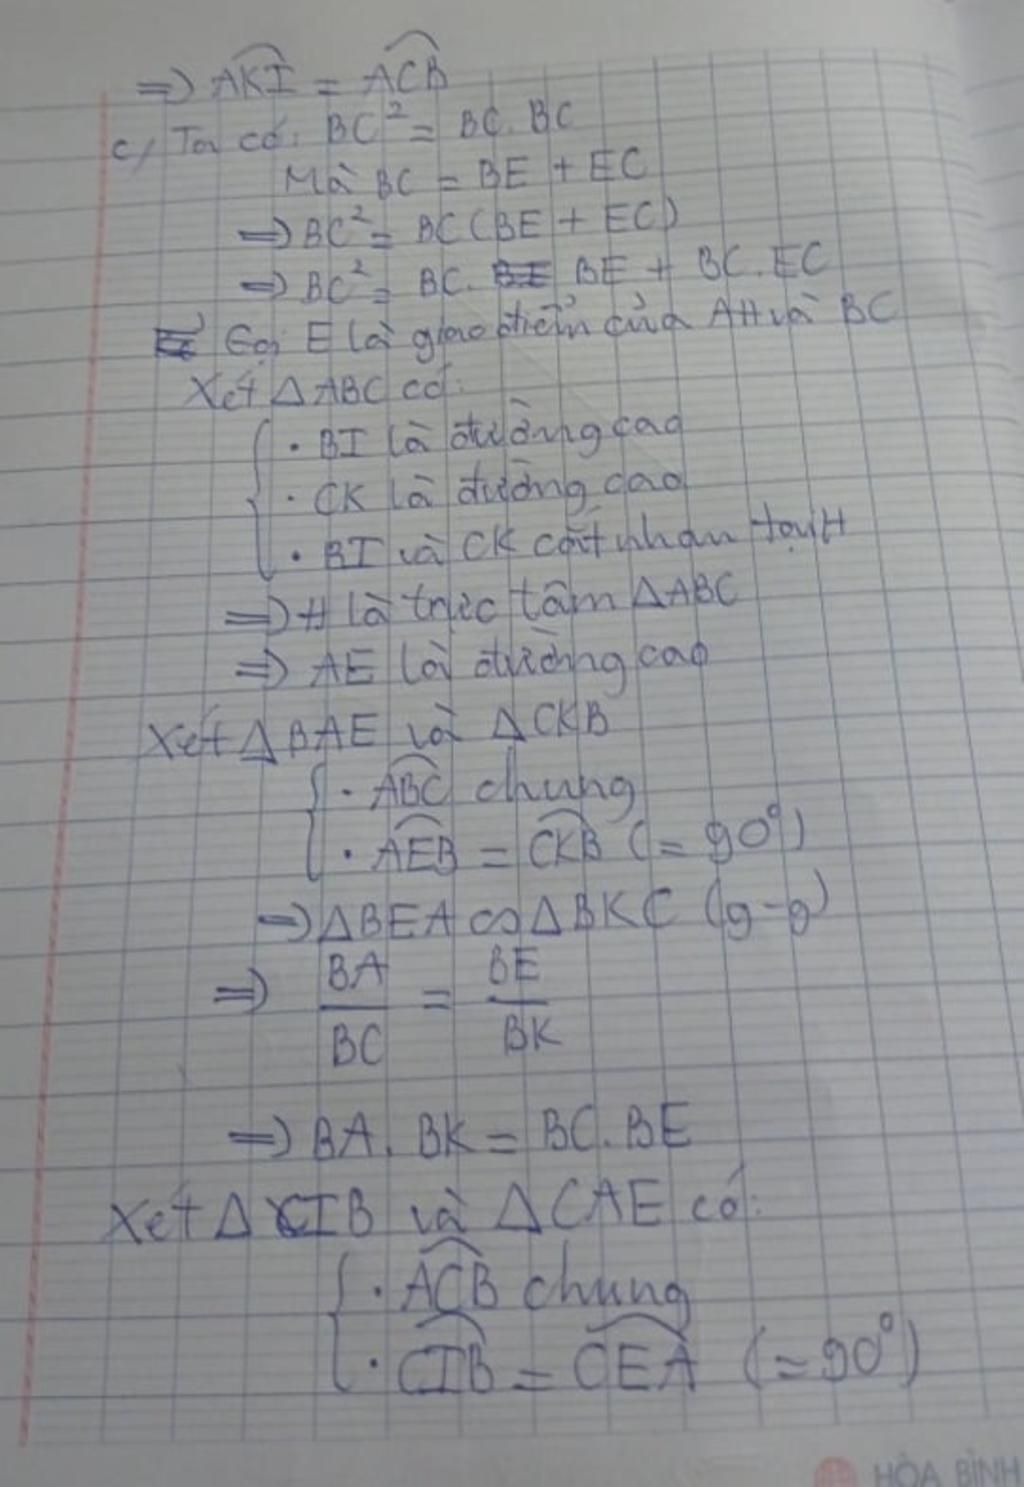 => AKI = ACB
c, Ta có: BC² = BC. BC
Mà BC = BE + EC
=> BC² = BC (BE + EC)
=> BC² = BC. BE + BC. EC
Gọi E là giao điểm của AH và BC
Xét △ABC có:
· BI là đường cao
· CK là đường cao
· BI và CK cắt nhau tại H
=> H là trực tâm △ABC
=> AE là đường cao
Xét △BAE và △CKB
· ABC chung
· AEB = CKB (= 90°)
=> △BEA ∽ △BKC (g-g)
=> BA/BC = BE/BK
=> BA. BK = BC. BE
Xét △CIB và △CAE có:
· ACB chung
· CIB = CEA (= 90°)
HÒA BÌNH